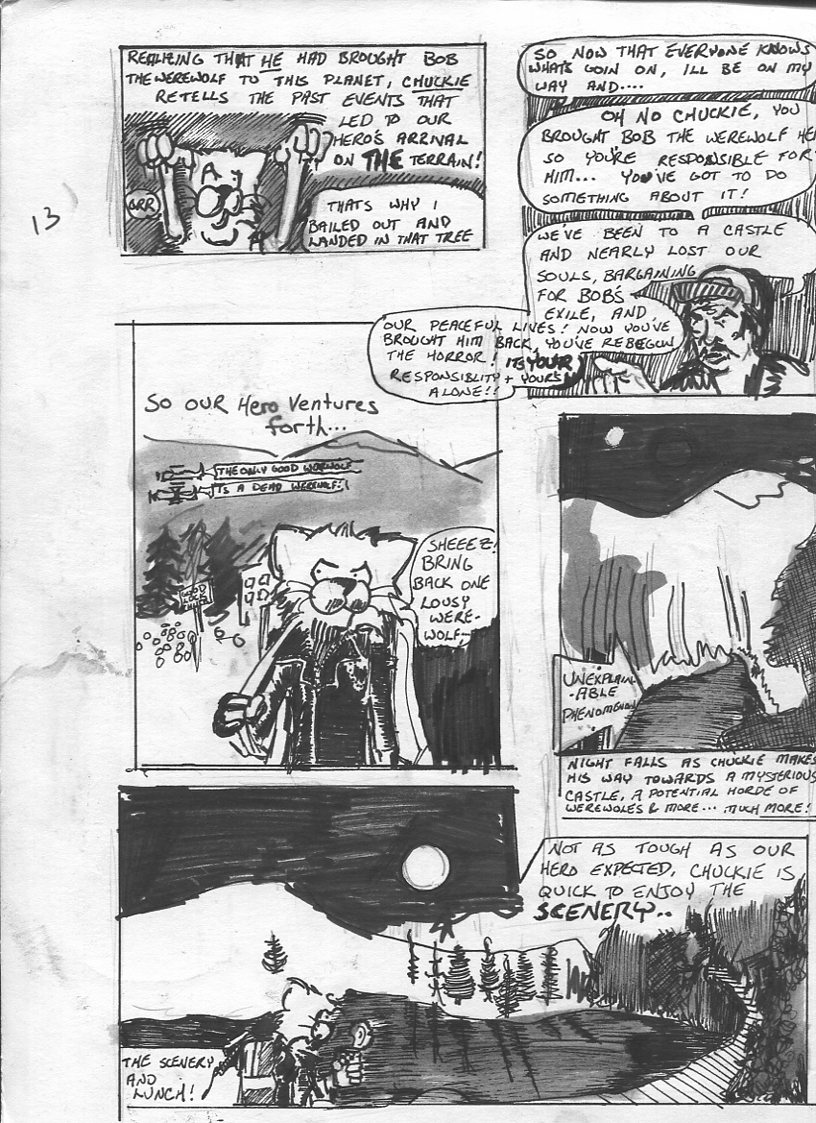 REALIZING THAT HE HAD BROUGHT BOB
THE WEREWOLF TO THIS PLANET, CHUCKIE
RETELLS THE PAST EVENTS THAT
LED TO OUR
HERO'S ARRIVAL
ON THE TERRAIN!
GRR
THATS WHY I
BAILED OUT AND
LANDED IN THAT TREE
13
SO NOW THAT EVERYONE KNOWS
WHAT'S GOIN ON, ILL BE ON MY
WAY AND....
OH NO CHUCKIE, YOU
BROUGHT BOB THE WEREWOLF HE
SO YOU'RE RESPONSIBLE FOR
HIM... YOU'VE GOT TO DO
SOMETHING ABOUT IT!
WE'VE BEEN TO A CASTLE
AND NEARLY LOST OUR
SOULS, BARGAINING
FOR BOB'S
EXILE, AND
OUR PEACEFUL LIVES! NOW YOU'VE
BROUGHT HIM BACK, YOU'VE REBEGUN
THE HORROR! ITS YOUR
RESPONSIBLITY + YOURS
ALONE!!
SO OUR Hero VENTURES
forth...
THE ONLY GOOD WERWOLF
IS A DEAD WEREWOLF!!
GOOD
LUCK
SHEEEZ!
BRING
BACK ONE
LOUSY
WERE-
WOLF..
UNEXPLAIN-
-ABLE
PHENOMENON
NIGHT FALLS AS CHUCKIE MAKES
HIS WAY TOWARDS A MYSTERIOUS
CASTLE, A POTENTIAL HORDE OF
WEREWOLES & MORE... MUCH MORE!
NOT AS TOUGH AS OUR
HERO EXPECTED, CHUCKIE IS
QUICK TO ENJOY THE
SCENERY..
THE SCENERY
AND
LUNCH!